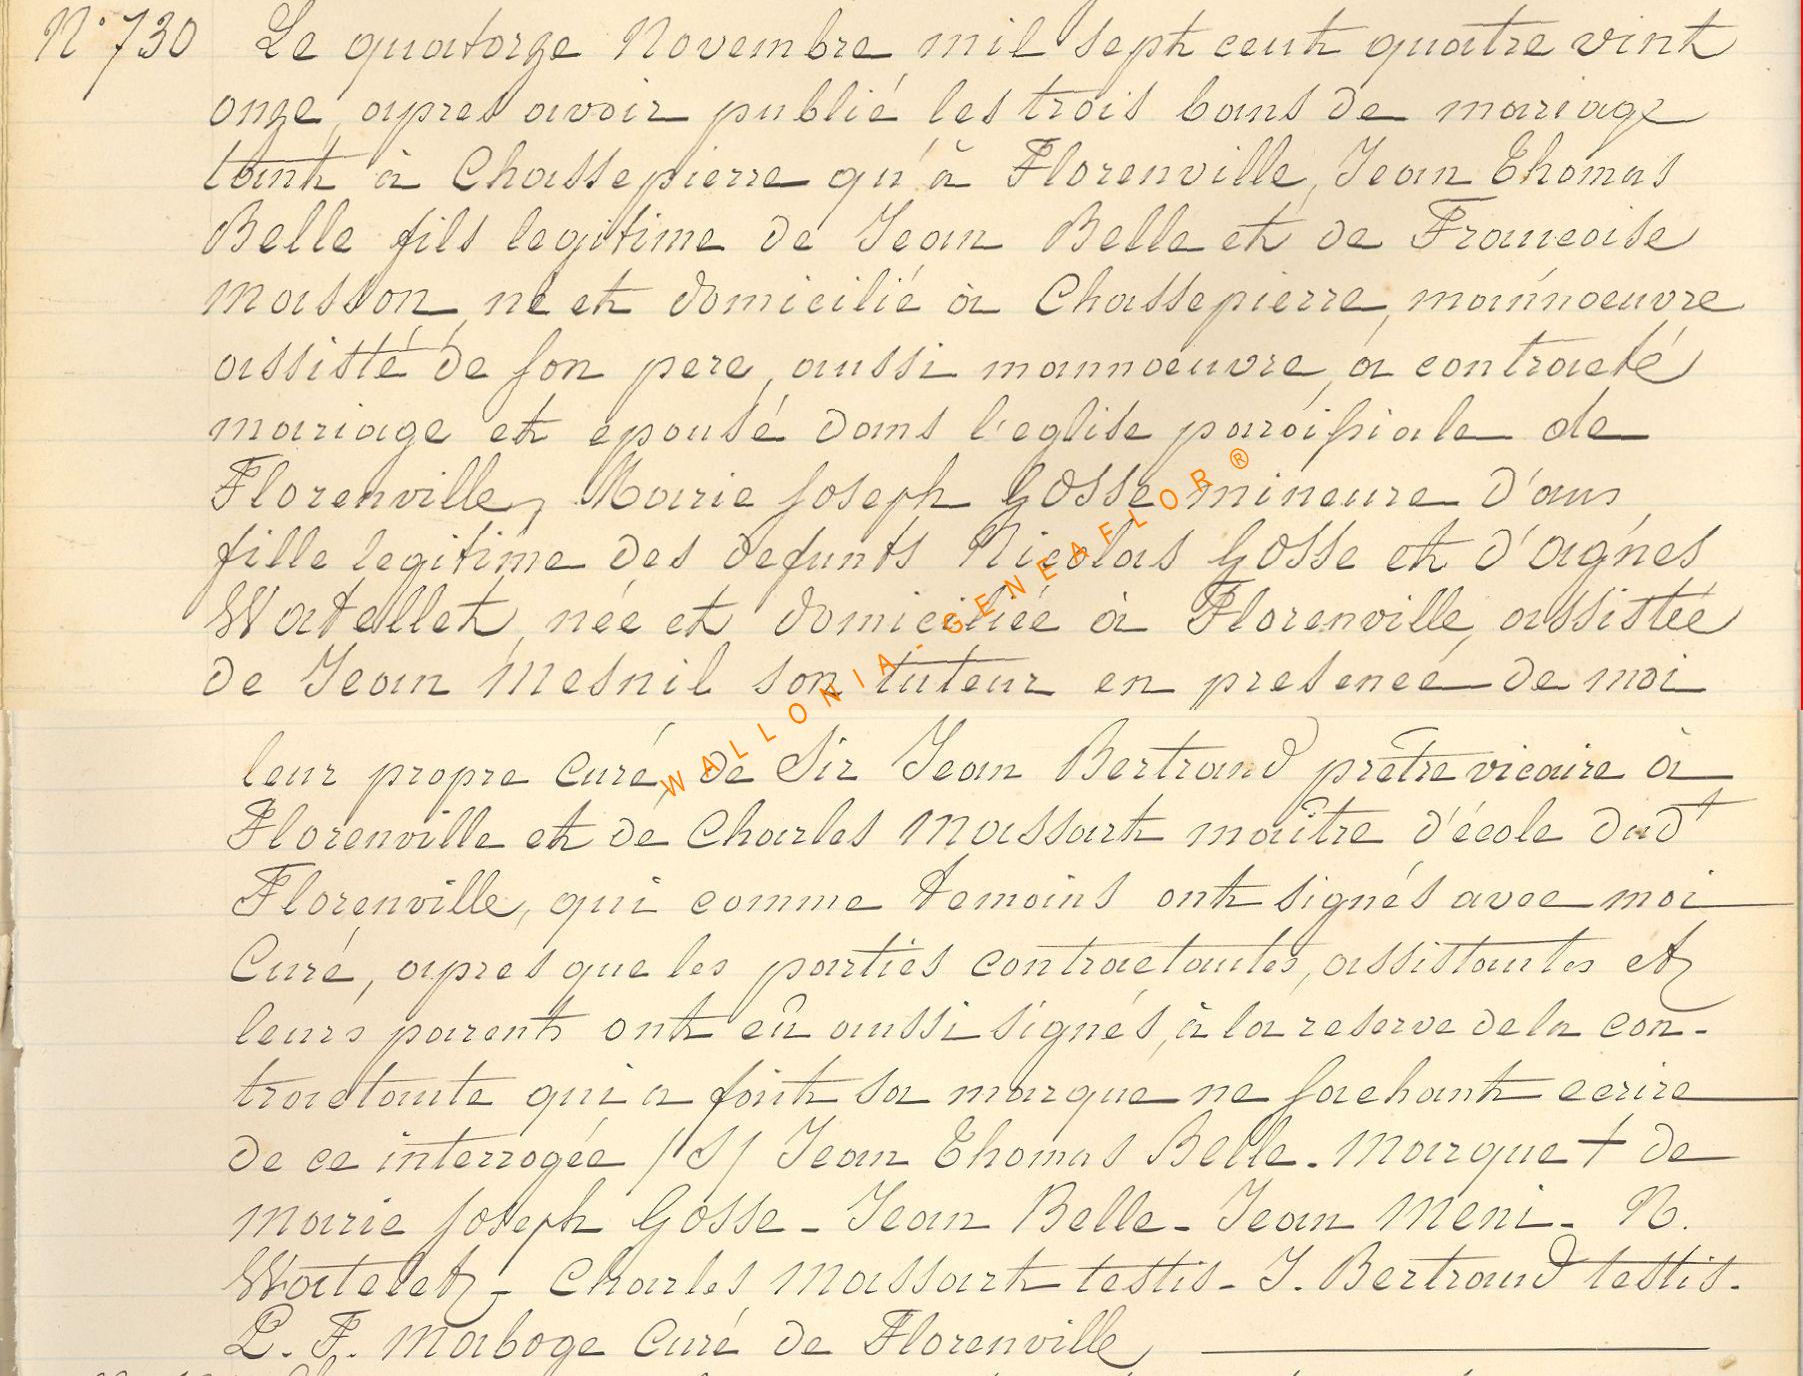 N° 730 Le quatorze Novembre mil sept cent quatre vint
onze, apres avoir publié les trois bans de mariage
tant à Chassepierre qu'à Florenville, Jean Thomas
Belle fils legitime de Jean Belle et de Francoise
Masson, né et domicilié à Chassepierre, mannoeuvre
assisté de son pere, aussi mannoeuvre, a contracté
mariage et epousé dans l'eglise paroissiale de
Florenville, Marie Joseph Gosse mineure d'ans,
fille legitime des defunts Nicolas Gosse et d'agnes
Watellet, née et domiciliée à Florenville, assistée
de Jean Mesnil son tuteur en presence de moi
leur propre Curé, de Sir Jean Bertrand prêtre vicaire à
Florenville et de Charles Massart maître d'école dudt
Florenville, qui comme temoins ont signés avec moi
Curé, apres que les parties contractantes, assistantes et
leurs parents ont eû aussi signés, à la reserve de la con-
tractante qui a fait sa marque ne sachant ecrire
de ce interrogée /S/ Jean Thomas Belle - Marque + de
Marie Joseph Gosse - Jean Belle - Jean Meni - N.
Watelet - Charles Massart testis - J. Bertrand testis.
P. F. Maboge Curé de Florenville
WALLONIA-GENEAFLOR ®